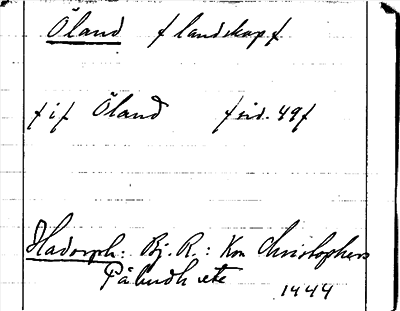 Öland /landskap/
/i/ Öland /sid. 49/
Hadorph: Bj. R.: Kon Christophers
Påbudh etc 1444